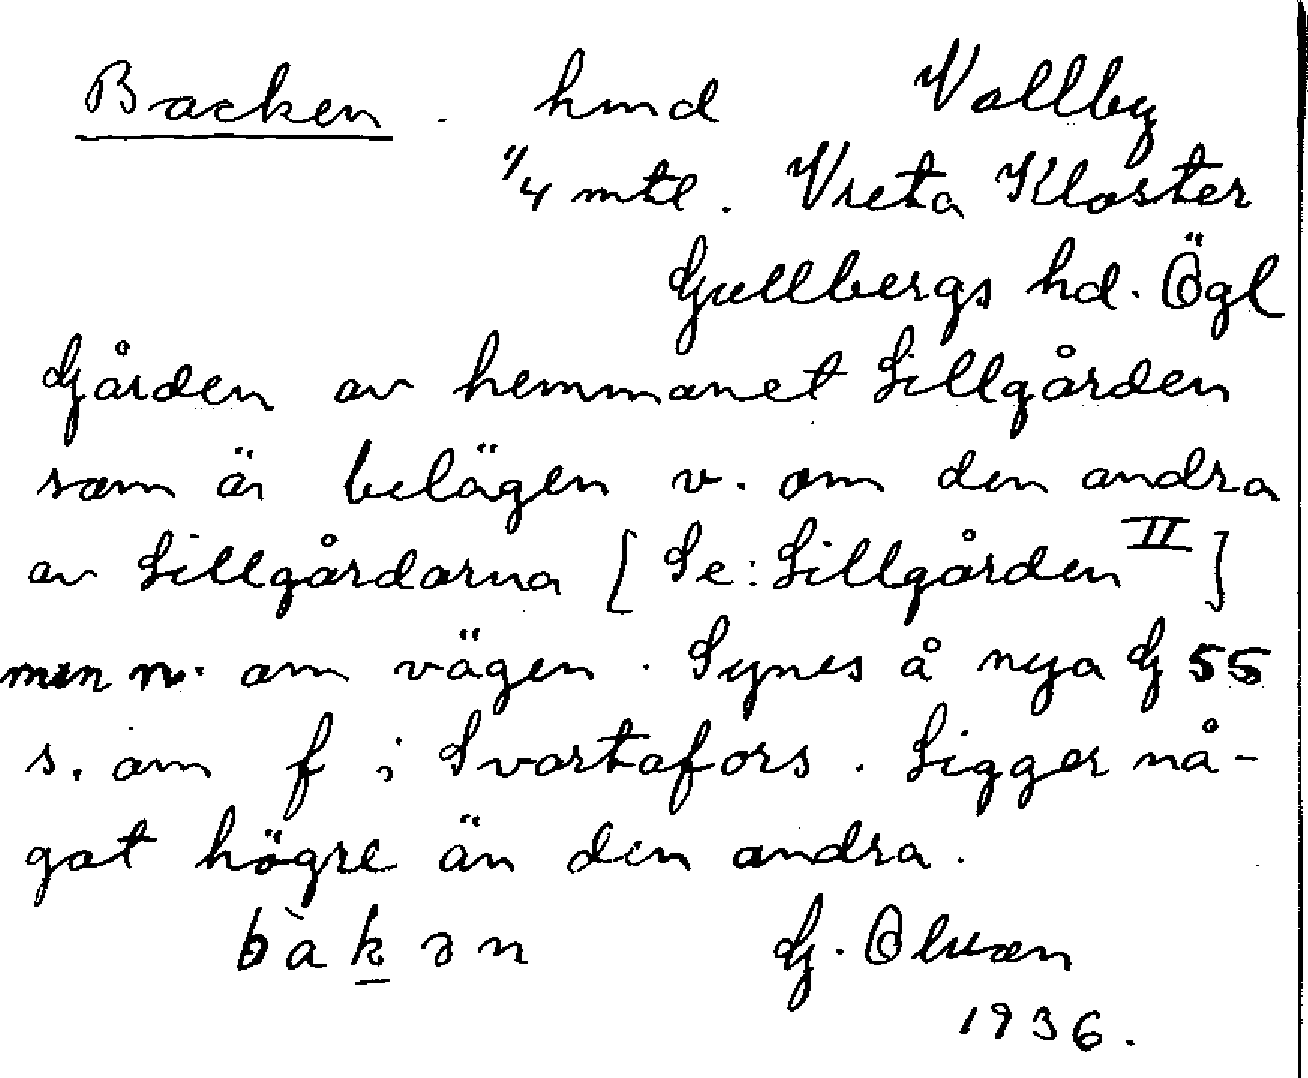 Backen. hmd Vallby
1/4 mtl. Vreta Kloster
Gullbergs hd. Ögl
Gården av hemmanet Lillgården
som är belägen v. om den andra
av Lillgårdarna [Se: Lillgården II]
men n. om vägen. Synes å nya G 55
s. om f i Svartafors. Ligger nå-
got högre än den andra.
bàk̲ən G. Olsson
1936.